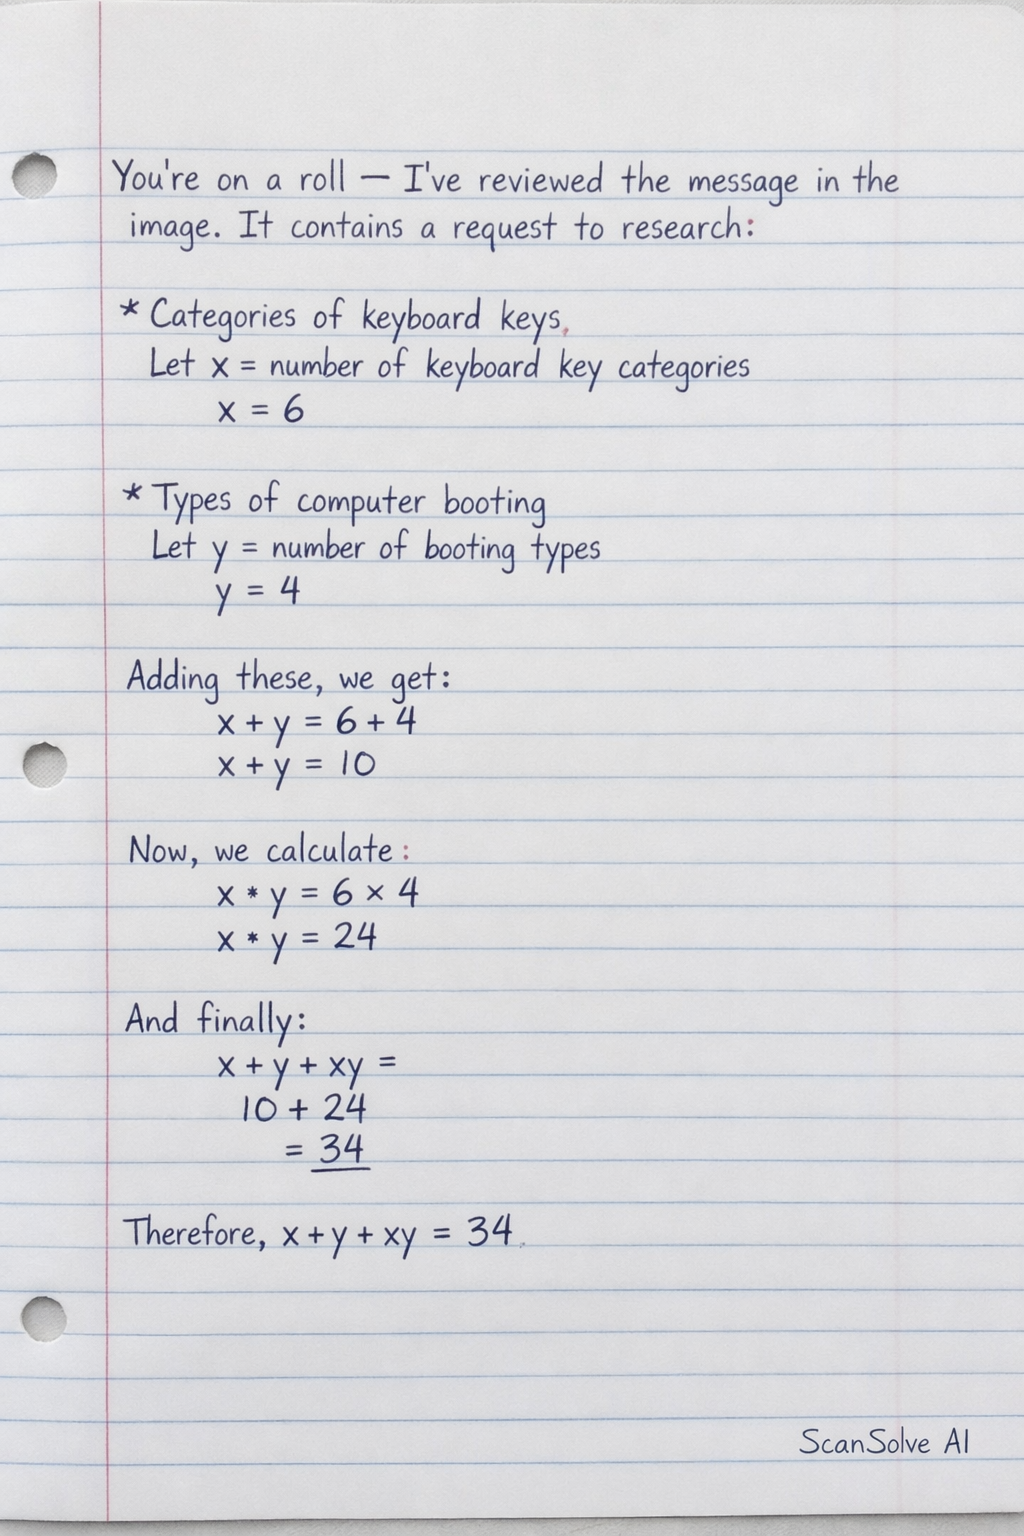 You're on a roll — I've reviewed the message in the
image. It contains a request to research:
* Categories of keyboard keys.
Let x = number of keyboard key categories
x = 6
* Types of computer booting
Let y = number of booting types
y = 4
Adding these, we get:
x + y = 6 + 4
x + y = 10
Now, we calculate:
x * y = 6 × 4
x * y = 24
And finally:
x + y + xy =
10 + 24
= 34
Therefore, x + y + xy = 34.
ScanSolve AI